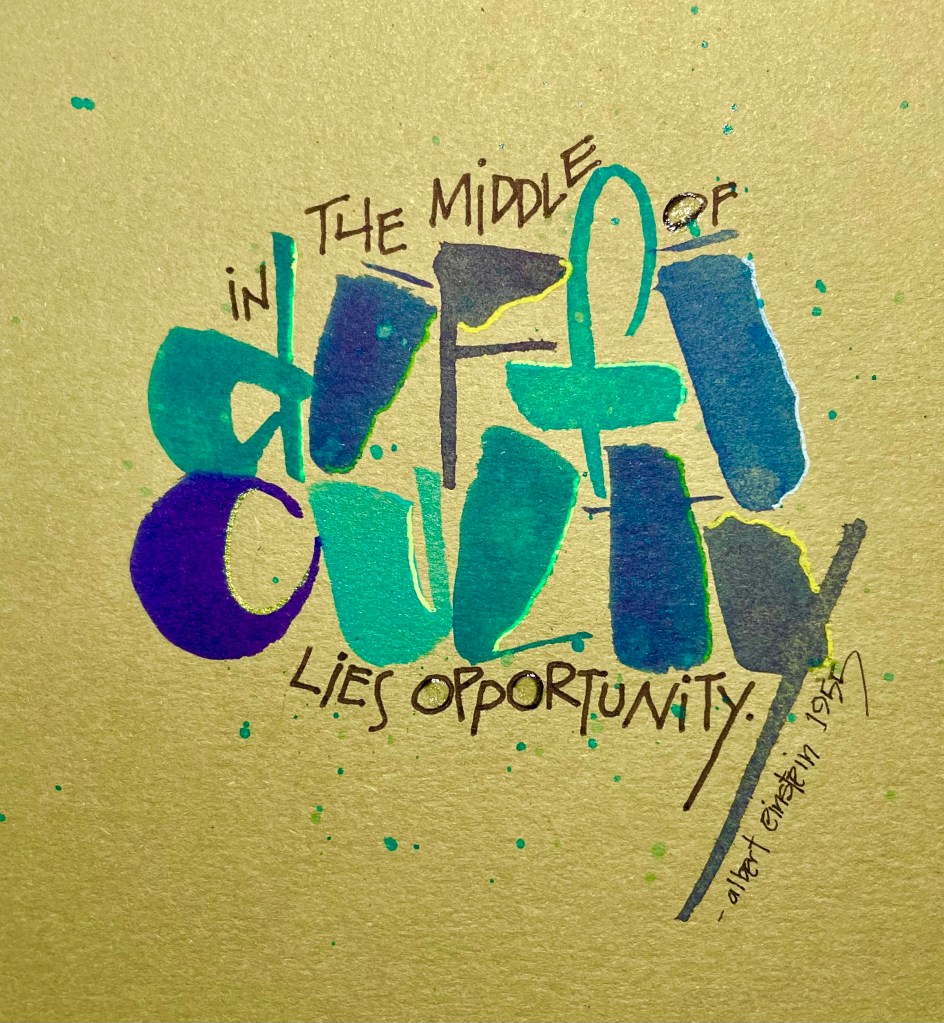 in THE MiDDLE OF
diffi
culty
LiES OPPORTUNiTY.
- albert einstein 1955